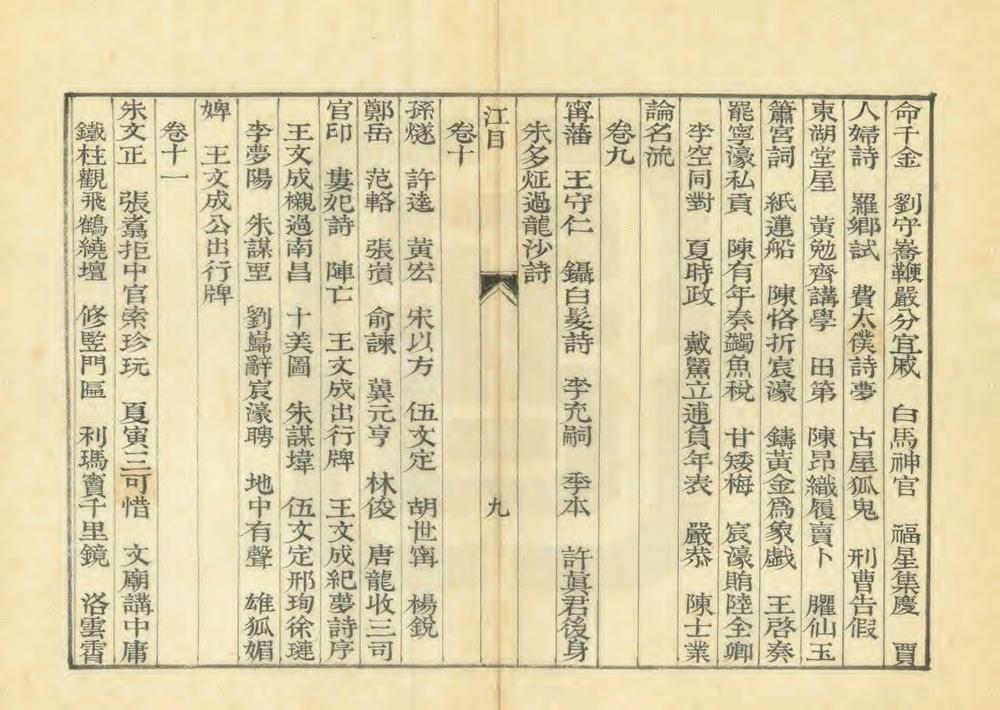 命千金　劉守嵜鞭嚴分宜戚　白馬神官　福星集慶　賈
人婦詩　羅鄉試　費太僕詩夢　古屋狐鬼　刑曹告假
東湖堂屋　黃勉齊講學　田第　陳昂織履賣卜　臞仙玉
簫宮詞　紙蓮船　陳恪折宸濠　鑄黃金爲象戯　王啓奏
罷寧濠私貢　陳有年奏蠲魚稅　甘矮梅　宸濠賄陸全卿
李空同對　夏時政　戴鱀立逋負年表　嚴恭　陳士業
論名流
卷九
甯藩　王守仁　鑷白髮詩　李充嗣　季本　許眞君後身
朱多炡過龍沙詩
江目　九
卷十
孫燧　許逵　黃宏　宋以方　伍文定　胡世甯　楊銳
鄭岳　范輅　張㠛　俞諫　冀元亨　林俊　唐龍收三司
官印　婁妃詩　陣亡　王文成出行牌　王文成紀夢詩序
王文成櫬過南昌　十美圖　朱謀㙔　伍文定邢珣徐璉
李夢陽　朱謀垔　劉巋辭宸濠聘　地中有聲　雄狐媚
婢　王文成公出行牌
卷十一
朱文正　張嵩拒中官索珍玩　夏寅三可惜　文廟講中庸
鐵柱觀飛鶴繞壇　修監門區　利瑪竇千里鏡　洛雲霄